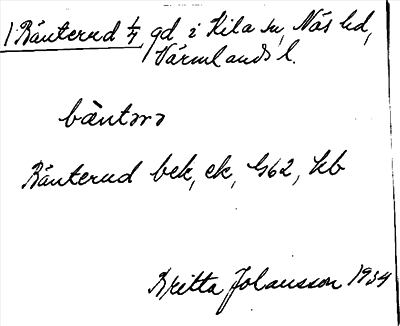 1 Bänterud 1/4 gd i Kila sn, Näs hd,
Värmlands l.
bæ̀ntərə
Bänterud bek, ek, G62, kb
Britta Johansson 1934